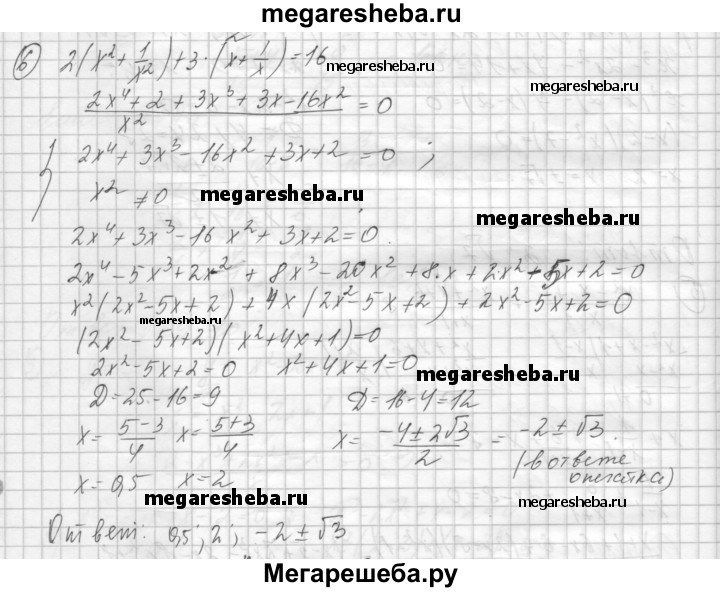 megaresheba.ru
6 2(x² + 1/x²) + 3·(x + 1/x) = 16
megaresheba.ru
megaresheba.ru
(2x⁴ + 2 + 3x³ + 3x - 16x²)/x² = 0
2x⁴ + 3x³ - 16x² + 3x + 2 = 0 ;
x² ≠ 0
megaresheba.ru
megaresheba.ru
2x⁴ + 3x³ - 16x² + 3x + 2 = 0.
2x⁴ - 5x³ + 2x² + 8x³ - 20x² + 8x + 2x² - 5x + 2 = 0
x²(2x² - 5x + 2) + 4x(2x² - 5x + 2) + 2x² - 5x + 2 = 0
megaresheba.ru
(2x² - 5x + 2)(x² + 4x + 1) = 0
2x² - 5x + 2 = 0 x² + 4x + 1 = 0
megaresheba.ru
D = 25 - 16 = 9 D = 16 - 4 = 12
x = (5 - 3)/4 x = (5 + 3)/4 x = (-4 ± 2√3)/2 = -2 ± √3.
x = 0,5 x = 2 (в ответе
опечатка)
megaresheba.ru
megaresheba.ru
Ответ: 0,5; 2; -2 ± √3
Мегарешеба.ру